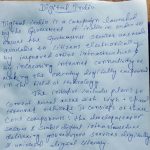 Digital India
Digital India is a campaign launched
by the Government of India in order to
ensure the Government services are made
available to citizens electronically
by improved online infrastructure &
by increasing Internet connectivity or
making the country digitally empowered
in the field of technology.
The initiative includes plans to
connect rural areas with high-speed
internet networks. It consists of three
core components: the development of
secure & stable digital infrastructure,
delivering government services digitally
& universal digital literacy.